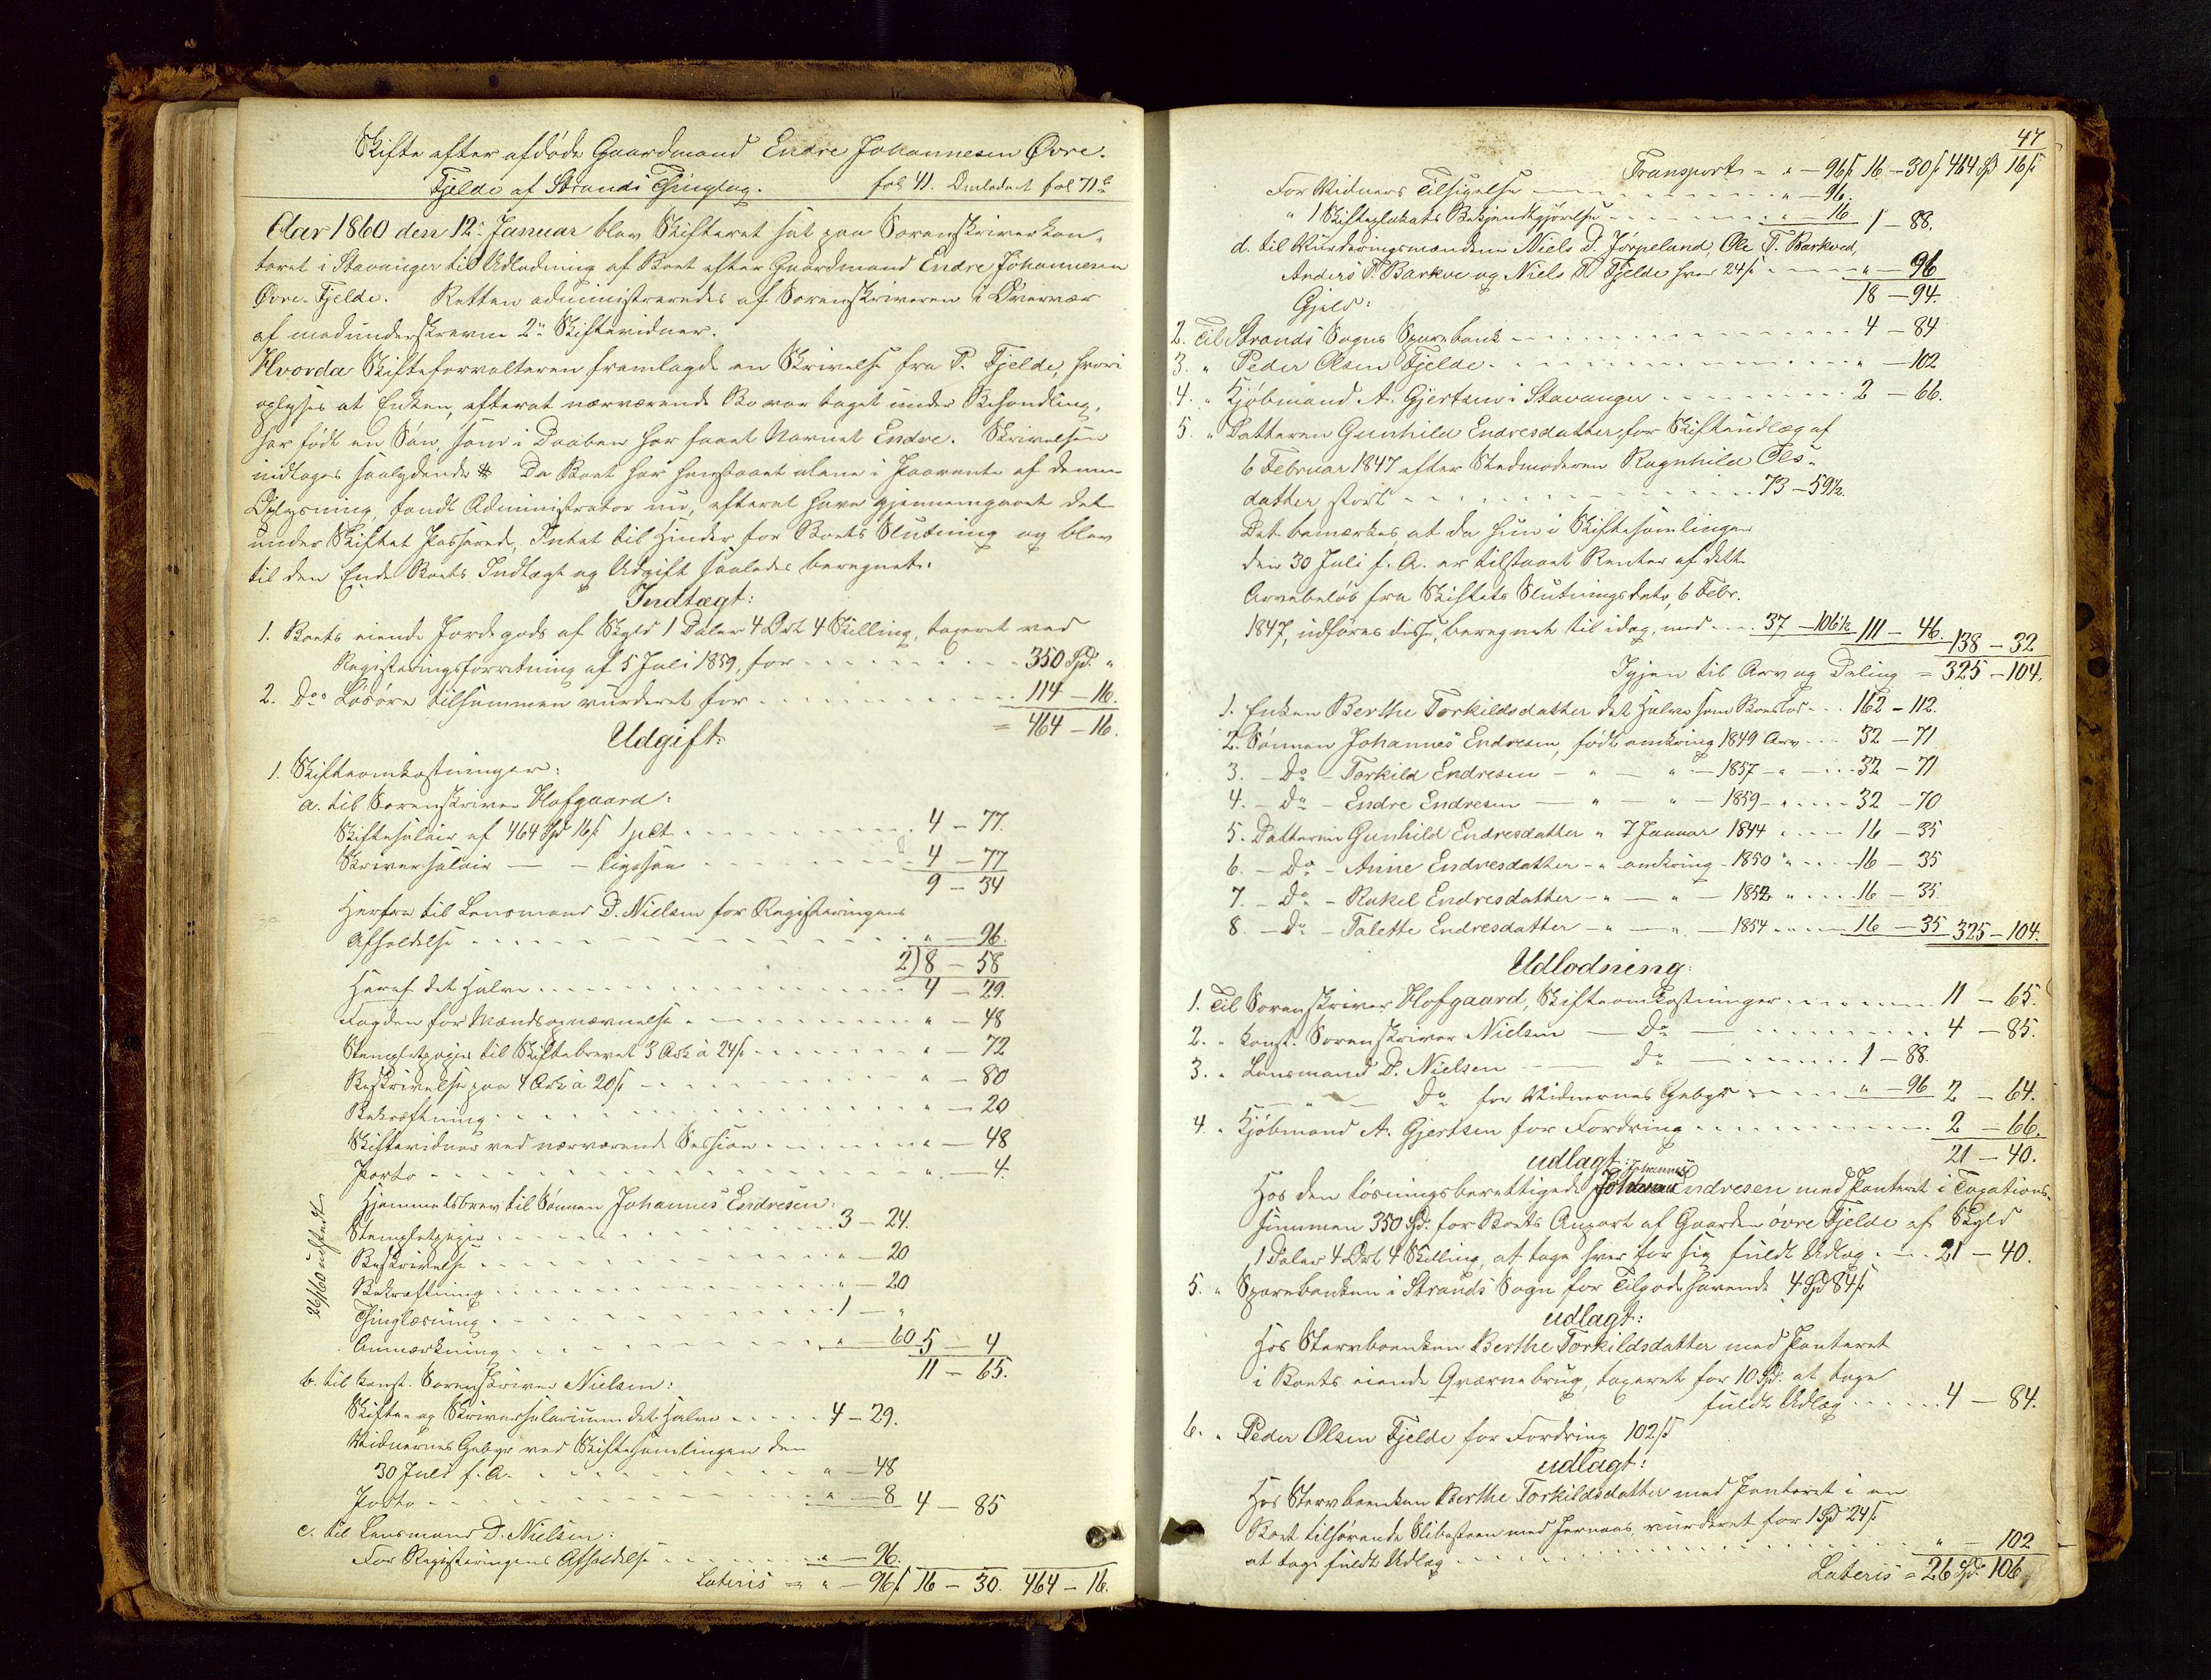 Skifte efter afdøde Gaardmand Endre Johannesen Øvre-
Fjelde af Strands Thinglag. fol 41. Omlodnet fol 71 b
Aar 1860 den 12te Januar blev Skifteret sat paa Sorenskriverkon-
toret i Stavanger til Udlodning af Boet efter Gaardmand Endre Johannesen
Øvre-Fjelde. Retten administreredes af Sorenskriveren i Overvær
af medunderskrevne 2de Skiftevidner.
Hvorda Skifteforvalteren fremlagde en Skrivelse fra P. Fjelde, hvori
oplyses at Enken, efterat nærværende Bo var taget under Behandling,
har født en Søn, som i Daaben har faaet Navnet Endre. Skrivelsen
indtages saalydende # Da Boet har henstaaet alene i Paavente af denne
Oplysning, fandt Administrator nu, efterat have gjennemgaaet det
under Skiftet Passerede, Intet til Hinder for Boets Slutning og blev
til den Ende Boets Indtægt og Udgift saaledes beregnet:
Indtægt:
1. Boets eiende Jordegods af Skyld 1 Daler 4 Ort 4 Skilling, taxeret ved
Registreringsforretning af 5 Juli 1859, for 350 Spd. "
2. Do. Løsøre tilsammen vurderet for 114 – 16.
= 464 – 16.
Udgift:
1. Skifteomkostninger:
a. til Sorenskriver Hofgaard:
Skiftesalair af 464 Spd 16 ß 1 pCt 4 – 77.
Skriversalair — – ligesaa 4 – 77
9 – 34
Herfra til Lensmand D. Nielsen for Registreringens
Afholdelse " – 96.
2) 8 – 58
Heraf det Halve 4 – 29.
Fogden for Mændsopnævnelse " – 48
Stempletpapir til Skiftebrevet 3 Ark à 24 ß " – 72
Beskrivelse paa 4 Ark à 20 ß " – 80
Bekræftning " – 20
Skiftevidner ved nærværende Session " – 48
Porto " – 4.
Hjemmelsbrev til Sønnen Johannes Endresen:
Stempletpapir 3 – 24.
Beskrivelse " – 20
Bekræftning " – 20
Thinglæsning 1 – "
Anmærkning " – 60 5 – 4
11 – 65.
26/1 60 udstedt
b. til const. Sorenskriver Nielsen:
Skifte- og Skriversalarium det Halve 4 – 29.
Vidnernes Gebyr ved Skiftesamlingen den
30 Juli f. A. " – 48
Porto " – 8 4 – 85
c. til Lensmand D. Nielsen:
For Registreringens Afholdelse " – 96.
Lateris = " – 96 ß 16 – 30. 464 – 16.
47
Transport = " – 96 ß 16 – 30 ß 464 Spd 16 ß
For Vidners Tilsigelse " – 96.
" 1 Skifteplakats Bekjendtgjørelse " – 16 1 – 88.
d. til Vurderingsmændene Niels D. Jørpeland, Ole T. Barkved,
Anders P. Barkve og Niels T. Fjelde hver 24 ß " – 96
18 – 94.
Gjeld:
2. Til Strands Sogns Sparebank 4 – 84
3. " Peder Olsen Fjelde " – 102
4. " Kjøbmand A. Gjertsen i Stavanger 2 – 66.
5. " Datteren Gunhild Endresdatter, for Skifteudlæg af
6 Februar 1847 efter Stedmoderen Ragnhild Ols-
datter stort 73 – 59½.
Det bemærkes, at da hun i Skiftesamlingen
den 30 Juli f. A. er tilstaaet Renter af dette
Arvebeløb fra Skiftets Slutningsdato, 6 Febr.
1847, udføres disse, beregnet til idag, med 37 – 106½ 111 – 46. 138 – 32
Igjen til Arv og Deling = 325 – 104.
1. Enken Berthe Torkildsdatter det Halve som Boeslod 162 – 112.
2. Sønnen Johannes Endresen, født omkring 1849 Arv 32 – 71
3. – Do – Torkild Endresen – " — " – 1857 – " 32 – 71
4. – Do – Endre Endresen — " — " – 1859 – " 32 – 70
5. Datteren Gunhild Endresdatter " 7 Januar 1844 " 16 – 35
6. – Do – Anne Endresdatter – " omkring – 1850 " 16 – 35
7. – Do – Rakel Endresdatter – " — " – 1852 " 16 – 35.
8. – Do – Talette Endresdatter – " — " – 1854 " 16 – 35 325 – 104.
Udlodning:
1. Til Sorenskriver Hofgaard, Skifteomkostninger 11 – 65.
2. " const. Sorenskriver Nielsen — Do — 4 – 85.
3. " Lensmand D. Nielsen — Do — 1 – 88.
— " — Do for Vidnernes Gebyr " – 96 2 – 64.
4. " Kjøbmand A. Gjertsen for Fordring 2 – 66.
21 – 40.
udlagt:
Johannes
Hos den løsningsberettigede Endresen med Panteret i Taxations-
summen 350 Spd. for Boets Anpart af Gaarden øvre Fjelde af Skyld
1 Daler 4 Ort 4 Skilling, at tage hver for sig fuldt Udlæg 21 – 40.
5. " Sparebanken i Strands Sogn for Tilgodehavende 4 Spd 84 ß
udlagt:
Hos Stervboenken Berthe Torkildsdatter med Panteret
i Boets eiende Qværnebrug, taxeret for 10 Spd. at tage
fuldt Udlæg 4 – 84.
6. " Peder Olsen Fjelde for Fordring 102 ß
udlagt:
Hos Stervboenken Berthe Torkildsdatter med Panteret i en
Boet tilhørende Slibesteen med Jernaas vurderet for 1 Spd 24 ß
at tage fuldt Udlæg " – 102
Lateris = 26 Spd. 106